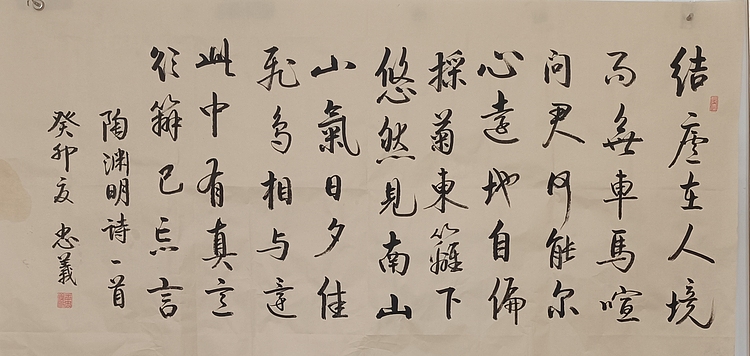 結廬在人境
而無車馬喧
問君何能尔
心遠地自偏
採菊東籬下
悠然見南山
山氣日夕佳
飛鳥相与還
此中有真意
欲辯已忘言
陶渊明诗一首
癸卯夏 忠義